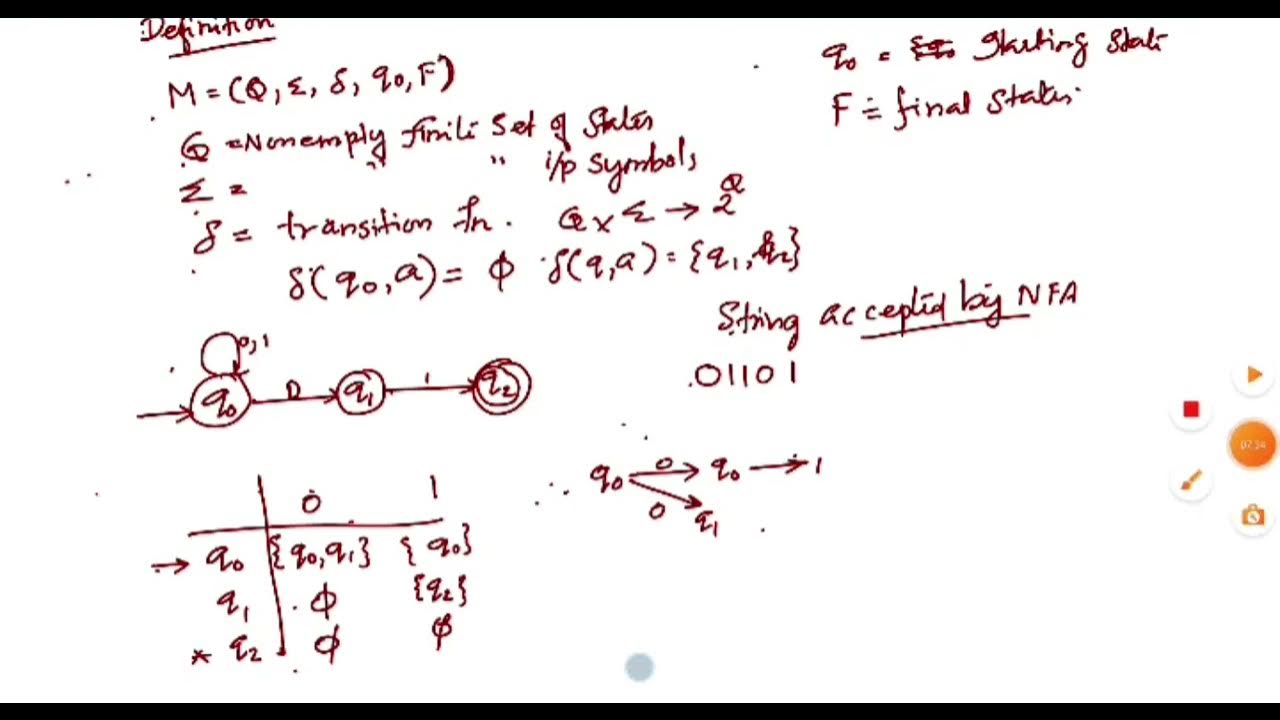 Definition
M = (Q, Σ, δ, q0, F)
Q = Nonemply finite Set of States
Σ = " " i/p Symbols
δ = transition fn. Q x Σ → 2^Q
δ(q0, a) = ϕ δ(q, a) = {q1, q2}
q0 = Starting State
F = final States.
String accepted by NFA
01101
0,1
q0 0 q1 1 q2
q0 0 q0 → 1
0 q1
0 1
→ q0 {q0, q1} {q0}
q1 ϕ {q2}
* q2 ϕ ϕ
02:34